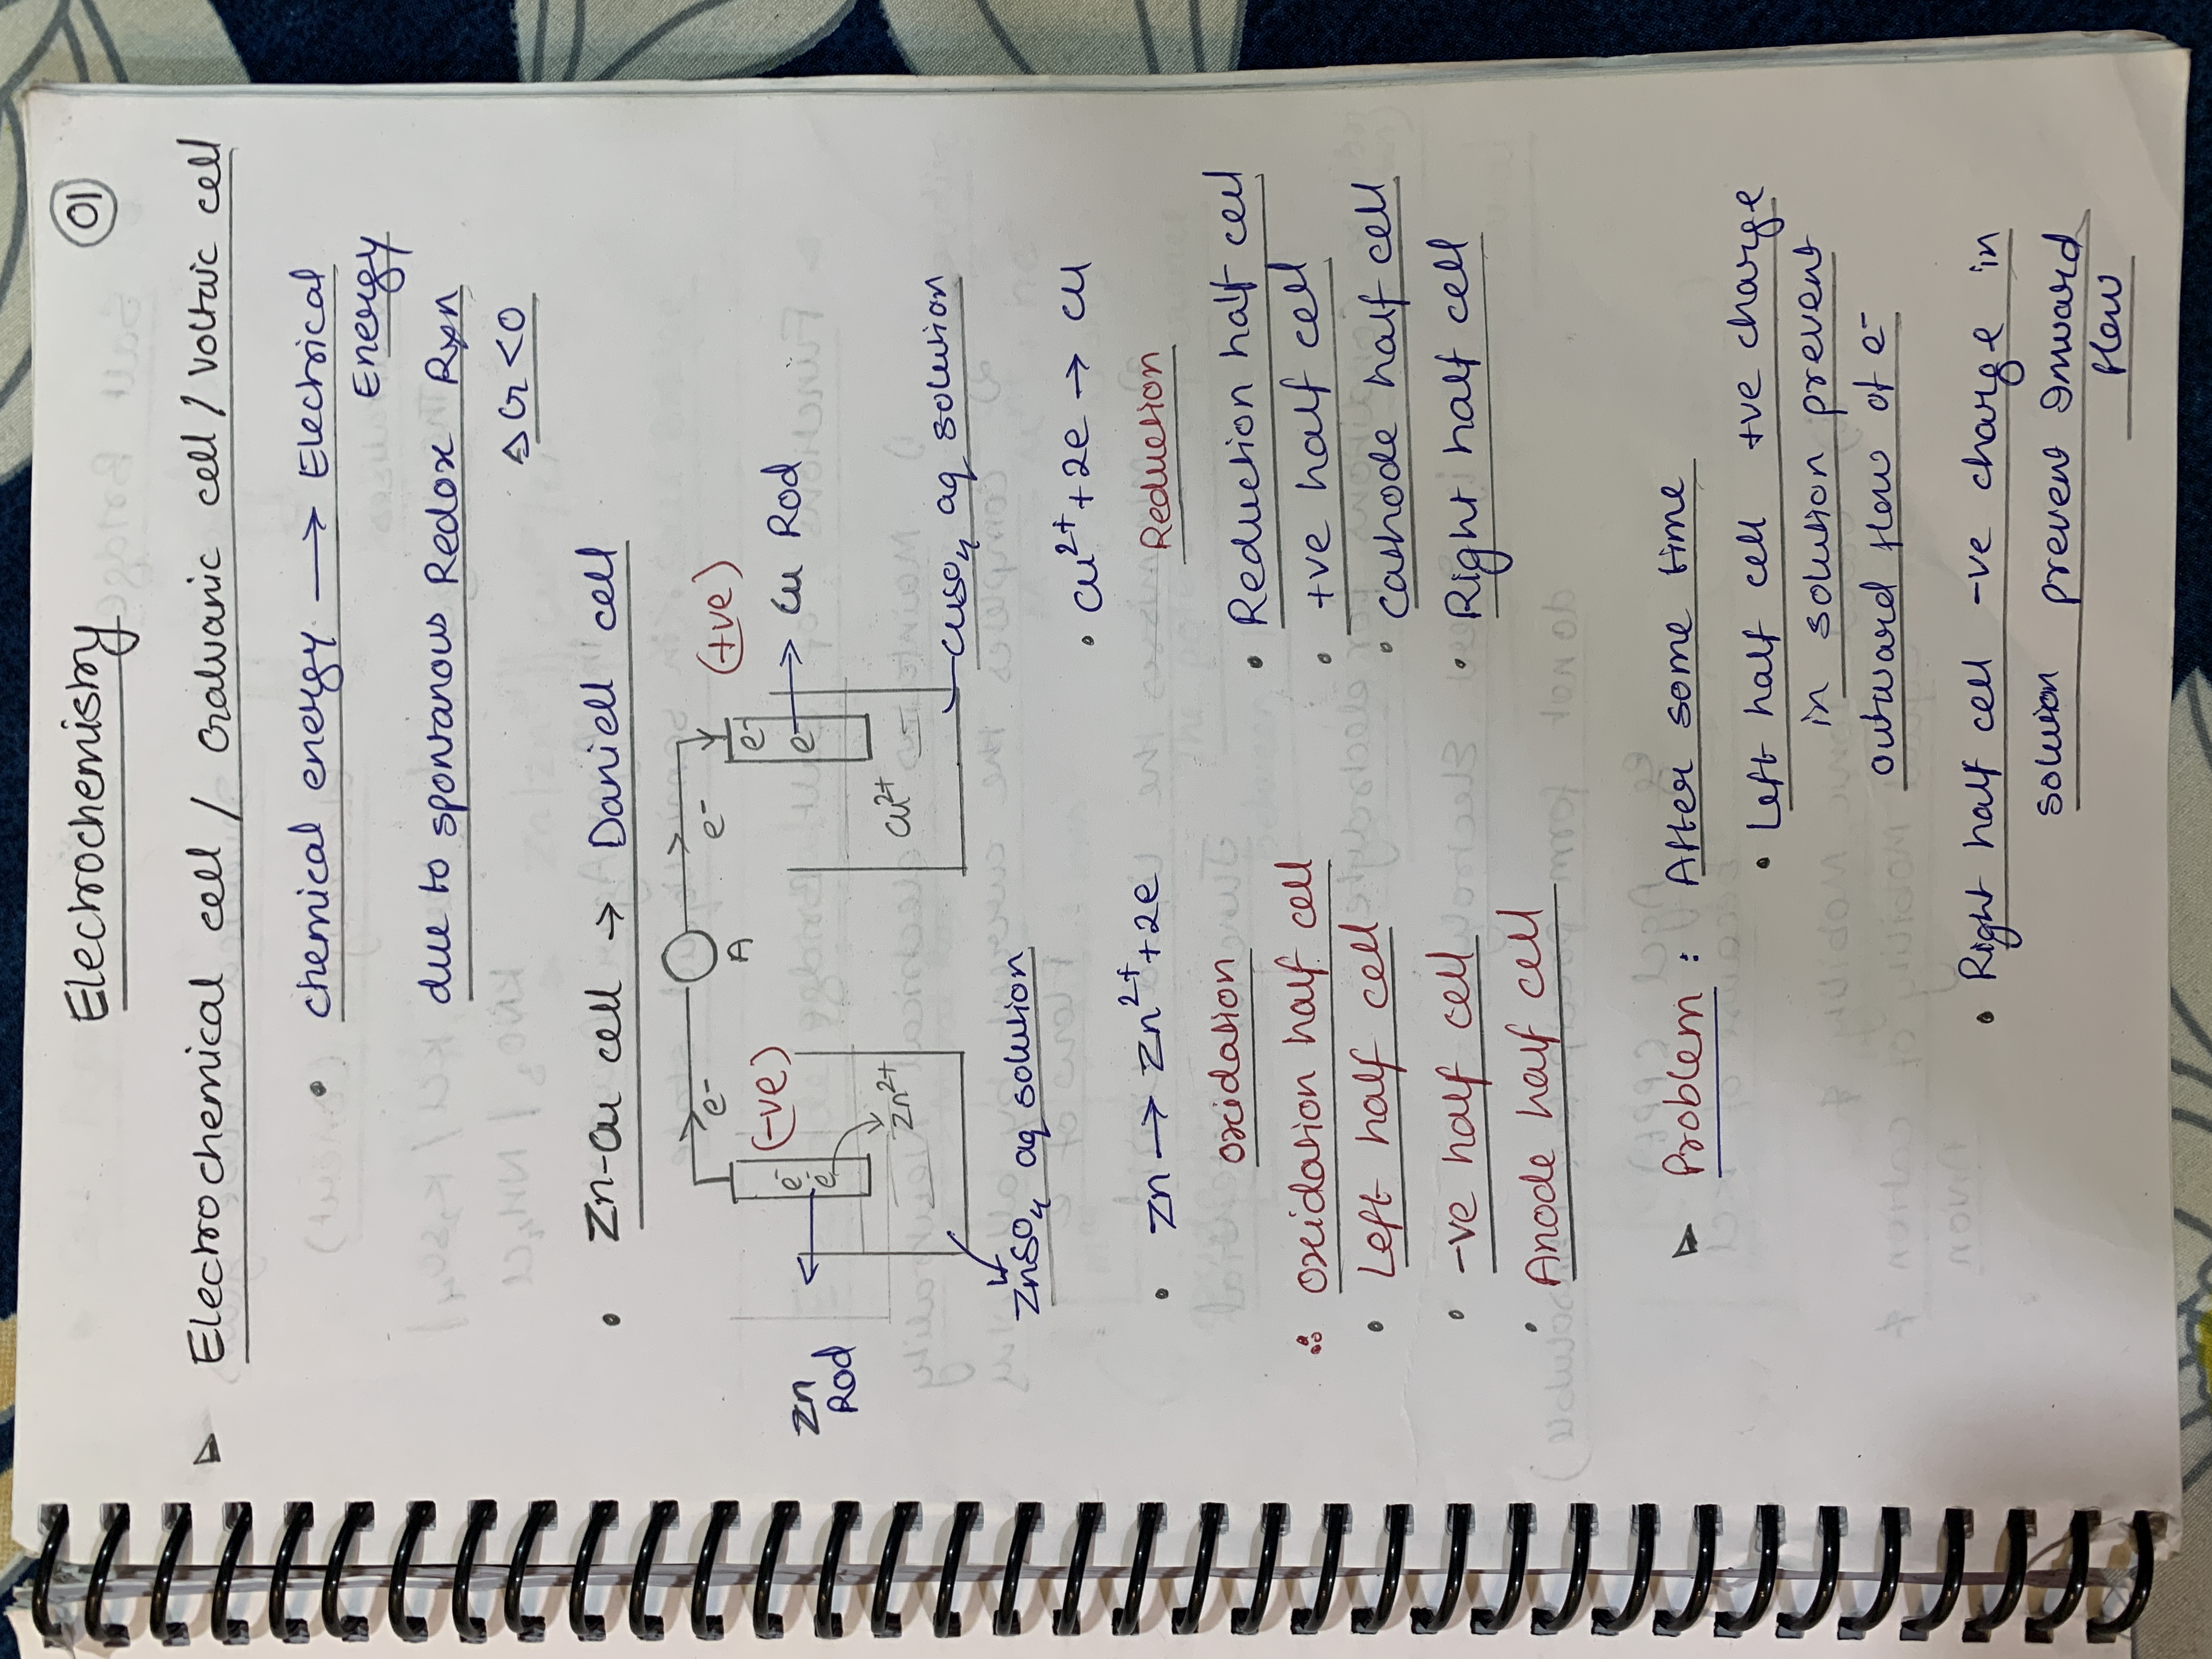 Electrochemistry
01
Electrochemical cell / Galvanic cell / Voltaic cell
• chemical energy → Electrical
Energy
due to spontanous Redox Rxn
ΔG < 0
• Zn-Cu cell → Daniell cell
e-
A
e-
(+ve)
(-ve)
e-
e-
Zn
Rod
e-
e-
Cu Rod
Zn2+
Cu2+
CuSO4 aq solution
ZnSO4 aq solution
• Cu2+ + 2e → Cu
• Zn → Zn2+ + 2e
Reduction
oxidation
• Reduction half cell
∴ oxidation half cell
• +ve half cell
• Left half cell
• Cathode half cell
• -ve half cell
• Right half cell
• Anode half cell
Problem : After some time
• Left half cell +ve charge
in solution prevent
outward flow of e-
• Right half cell -ve charge in
solution prevent Inward
flow